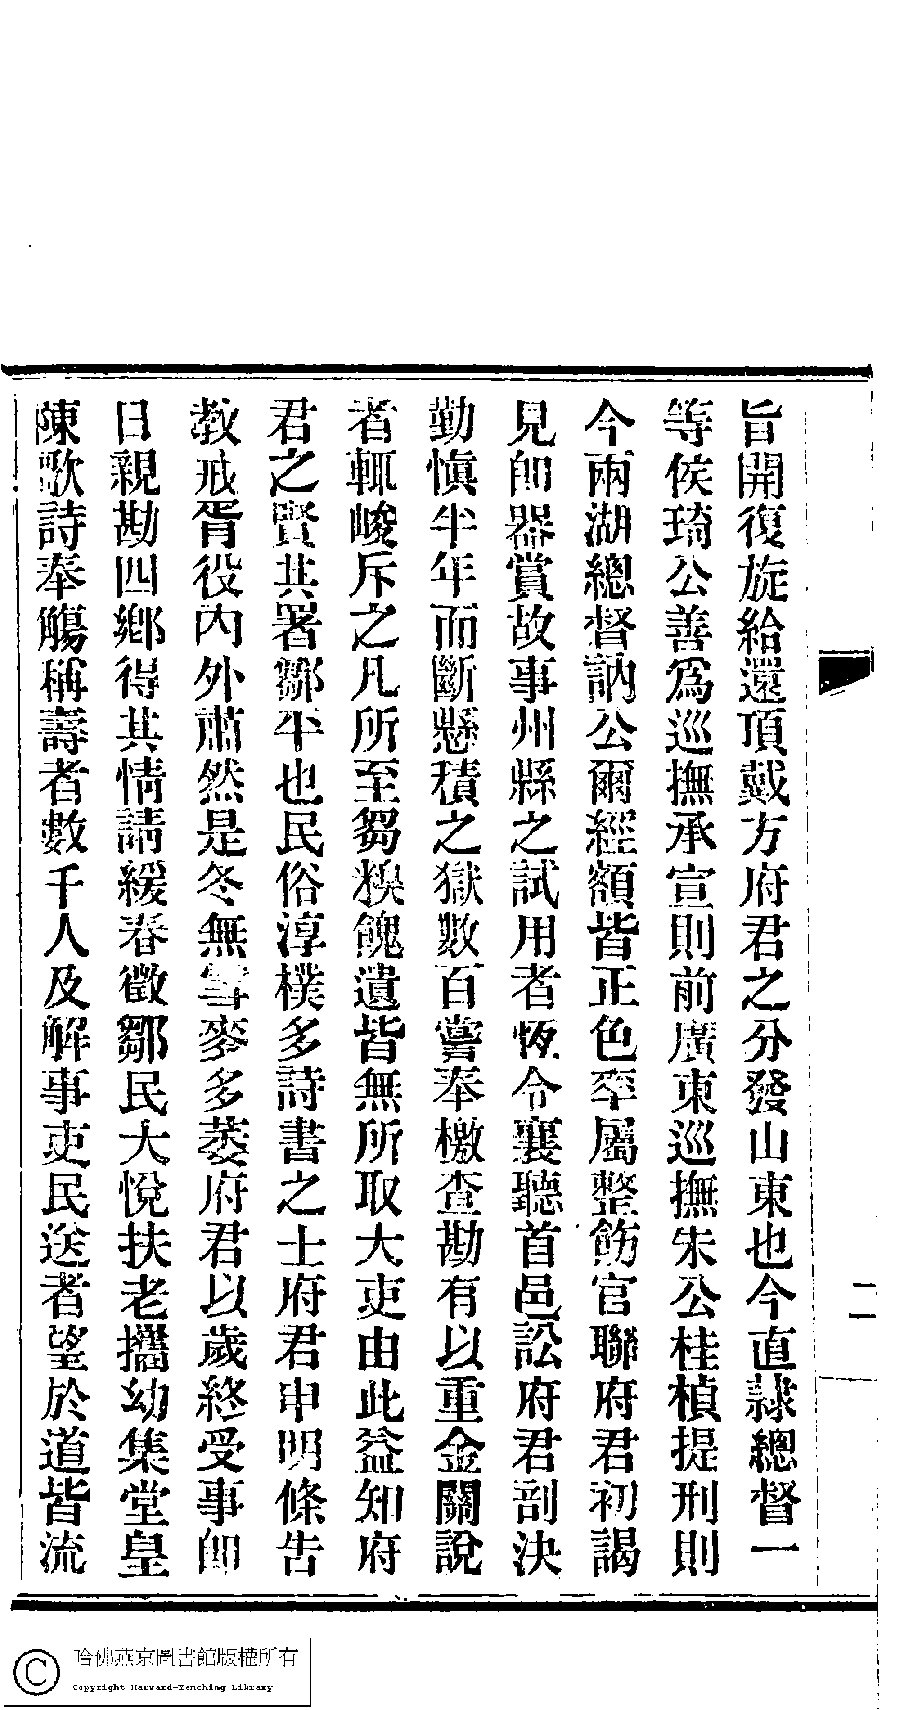 旨開復旋給還頂戴方府君之分發山東也今直隸總督一
等侯琦公善爲巡撫承宣則前廣東巡撫朱公桂楨提刑則
今兩湖總督訥公爾經額皆正色率屬整飭官聯府君初謁
見卽器賞故事州縣之試用者恆令襄聽首邑訟府君剖決
勤愼半年而斷懸積之獄數百嘗奉檄查勘有以重金關說
者輒峻斥之凡所至芻糗餽遺皆無所取大吏由此益知府
君之賢其署鄒平也民俗淳樸多詩書之士府君申明條告
教戒胥役內外肅然是冬無雪麥多萎府君以歲終受事卽
日親勘四鄉得其情請緩春徵鄒民大悅扶老攜幼集堂皇
陳歌詩奉觴稱壽者數千人及解事吏民送者望於道皆流
二
哈佛燕京圖書館版權所有
Copyright Harvard-Yenching Library